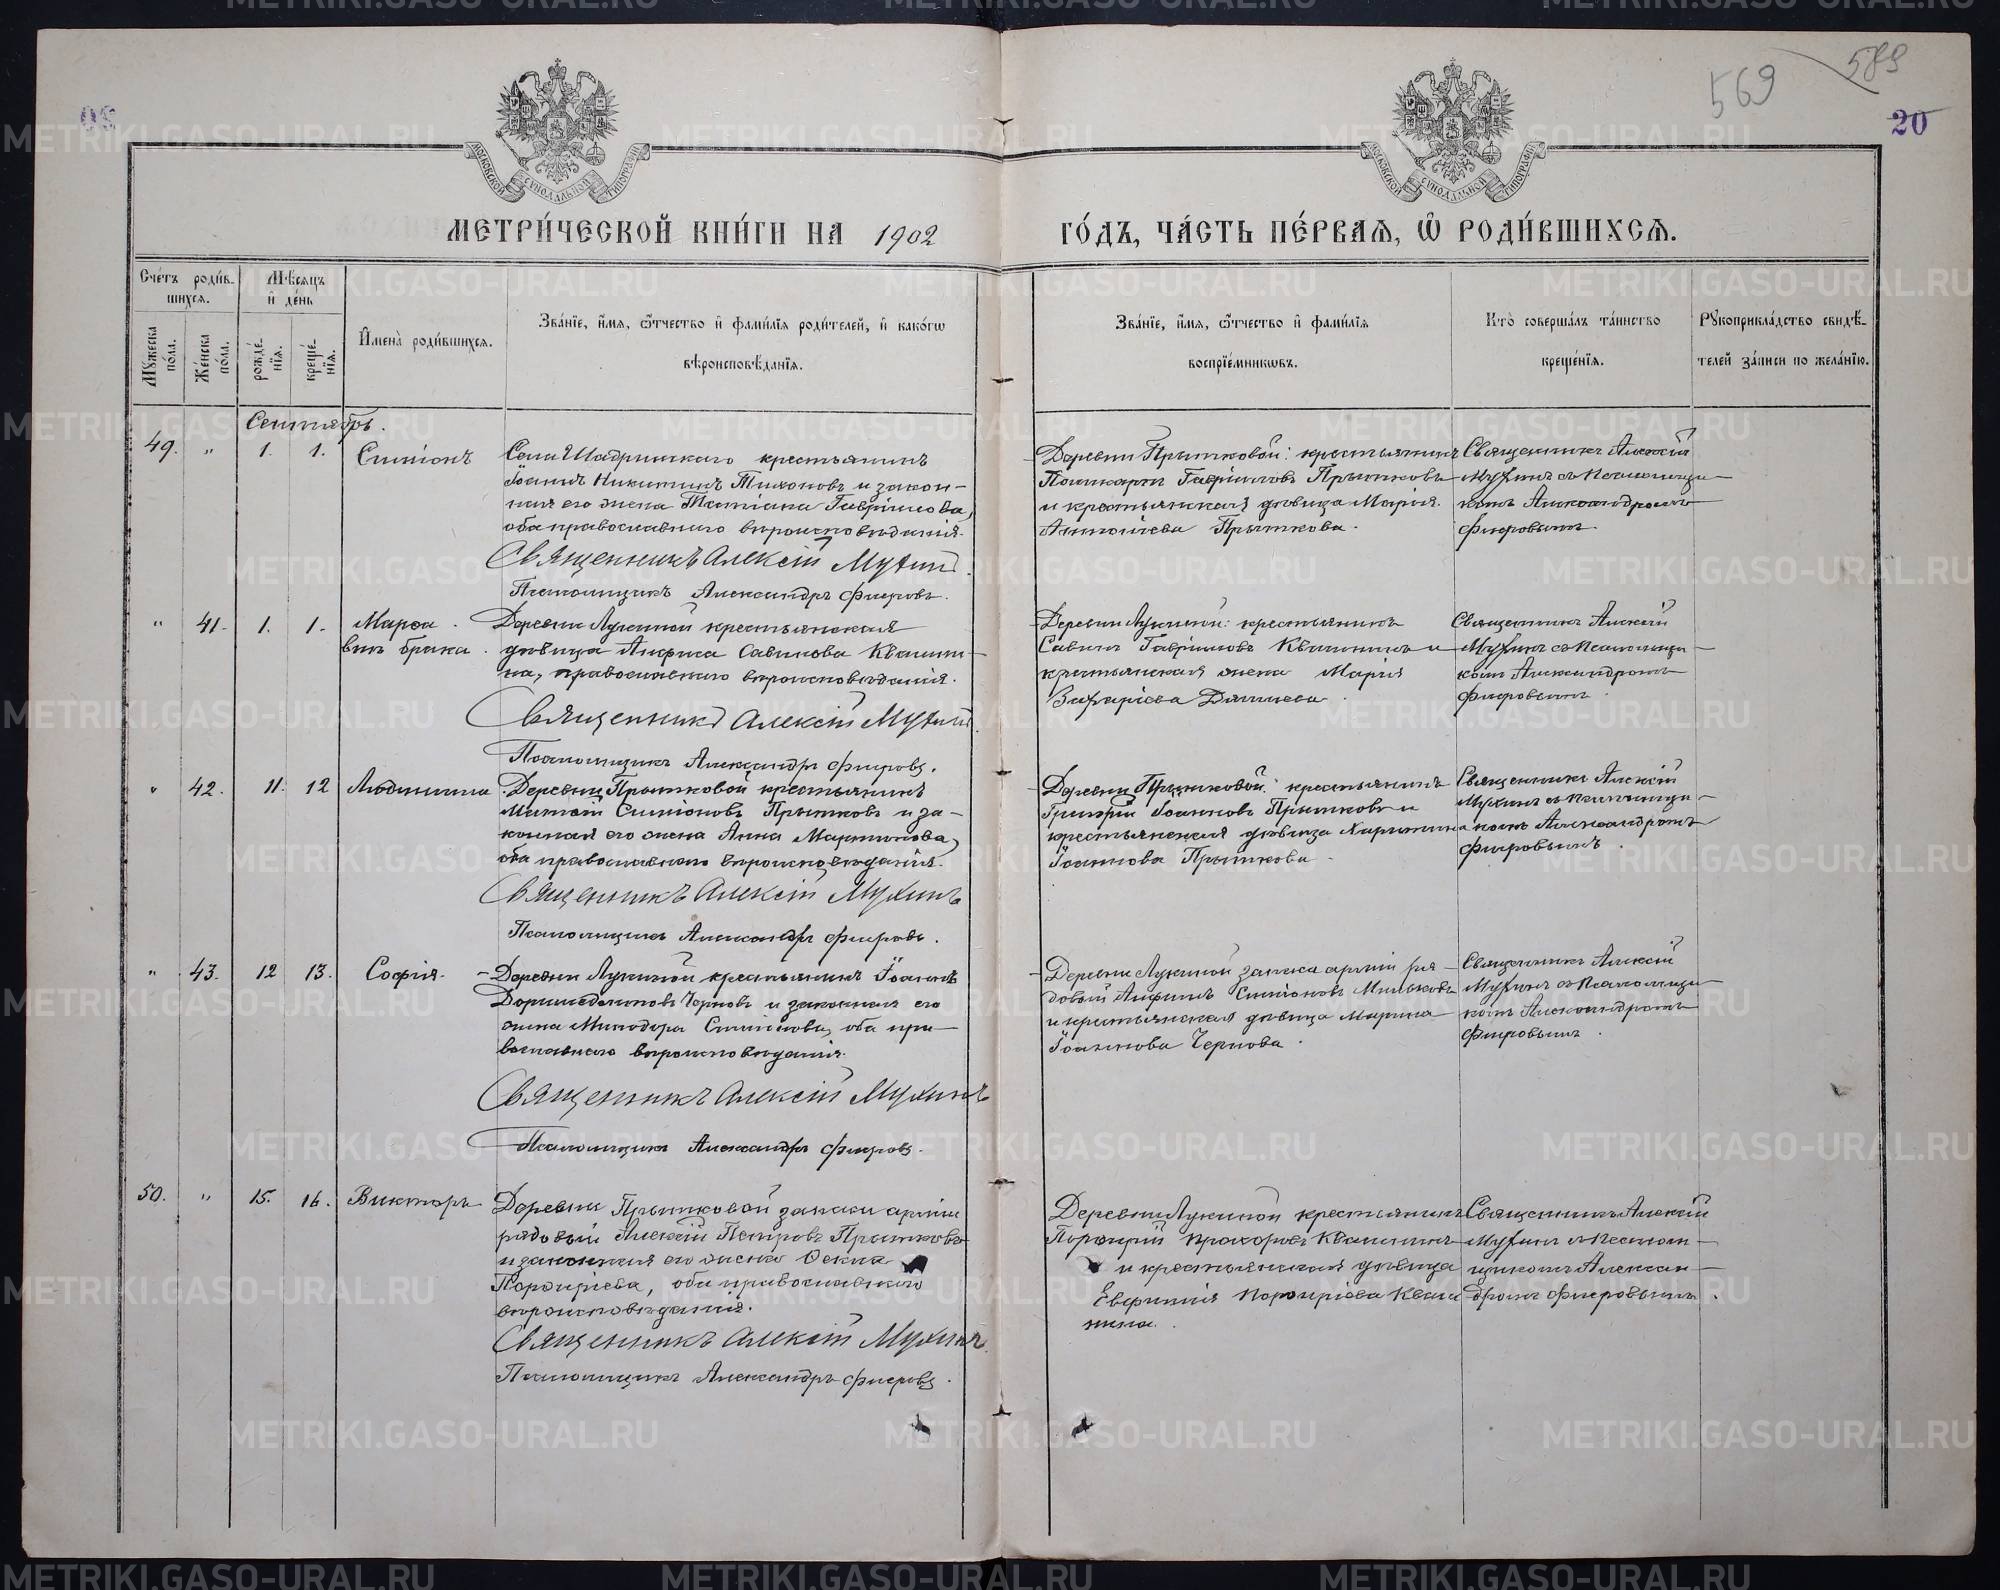 569
589
20
МОСКОВСКОЙ СѴНОДАЛЬНОЙ ТИПОГРАФІИ
МОСКОВСКОЙ СѴНОДАЛЬНОЙ ТИПОГРАФІИ
МЕТРИ́ЧЕСКОЙ КНИ́ГИ НА 1902 ГО́ДЪ, ЧА́СТЬ ПЕ́РВАѦ, Ѽ РОДИ́ВШИХСѦ.
Сче́тъ роди́в-
шихсѧ.
Мꙋ́жеска по́ла.
Же́нска по́ла.
Мѣ́сѧцъ
и҆ де́нь
рожде́-
нїѧ.
креще́-
нїѧ.
И҆мена̀ роди́вшихсѧ.
Зва́нїе, и҆́мѧ, ѻ҆́тчество и҆ фами́лїѧ роди́телей, и҆ како́гѡ
вѣроисповѣ́данїѧ.
Зва́нїе, и҆́мѧ, ѻ҆́тчество и҆ фами́лїѧ
воспрїе́мникѡвъ.
Кто̀ соверша́лъ та́инство
креще́нїѧ.
Рꙋкоприкла́дство свидѣ́-
телей за́писи по жела́нїю.
Сентябрь.
49. " 1. 1. Симіонъ
Села Шадринскаго крестьянинъ
Іоаннъ Никитинъ Тихоновъ и закон-
ная его жена Татіана Гавріилова,
оба православнаго вѣроисповѣданія.
Священникъ Алексій Мухинъ.
Псаломщикъ Александръ Фигровъ.
Деревни Прытковой: крестьянинъ
Гавріиловъ Прытковъ
и крестьянская дѣвица Марія
Прыткова.
Священникъ Алексій
Мухинъ съ Псаломщи-
комъ Александромъ
Фигровымъ.
" 41. 1. 1. Марѳа.
внѣ брака.
Деревни Лукиной крестьянская
дѣвица Анфиса Савинова Квашни-
на, православнаго вѣроисповѣданія.
Священникъ Алексій Мухинъ.
Псаломщикъ Александръ Фигровъ.
Деревни Лукиной: крестьянинъ
Савинъ Гавріиловъ Квашнинъ и
крестьянская жена Марія
Захаріева
Священникъ Алексій
Мухинъ съ Псаломщи-
комъ Александромъ
Фигровымъ.
" 42. 11. 12 Людмила
Деревни Прытковой крестьянинъ
Симіоновъ Прытковъ и за-
конная его жена Анна Мартинова,
оба православнаго вѣроисповѣданія.
Священникъ Алексій Мухинъ
Псаломщикъ Александръ Фигровъ.
Деревни Прытковой: крестьянинъ
Григорій Іоанновъ Прытковъ и
крестьянская дѣвица Харитина
Іоаннова Прыткова.
Священникъ Алексій
Мухинъ съ Псаломщи-
комъ Александромъ
Фигровымъ.
" 43. 12 13. Софія.
Деревни Лукиной крестьянинъ Іоаннъ
Черновъ и законная его
жена Минодора Симіонова, оба пра-
вославнаго вѣроисповѣданія.
Священникъ Алексій Мухинъ
Псаломщикъ Александръ Фигровъ.
Деревни Лукиной запаса арміи ря-
довой Симіоновъ Мильковъ
и крестьянская дѣвица Марина
Іоаннова Чернова.
Священникъ Алексій
Мухинъ съ Псаломщи-
комъ Александромъ
Фигровымъ.
50. " 15. 16. Викторъ
Деревни Прытковой запаса арміи
рядовой Алексій Петровъ Прытковъ
и законная его жена Ѳекла
Порфиріева, оба православнаго
вѣроисповѣданія.
Священникъ Алексій Мухинъ.
Псаломщикъ Александръ Фигровъ.
Деревни Лукиной крестьянинъ
Порфирій Прохоровъ Квашнинъ
и крестьянская дѣвица
Евфимія Порфиріева Кваш
нина.
Священникъ Алексій
Мухинъ съ Псалом-
щикомъ Алексан-
дромъ Фигровымъ.
METRIKI.GASO-URAL.RU